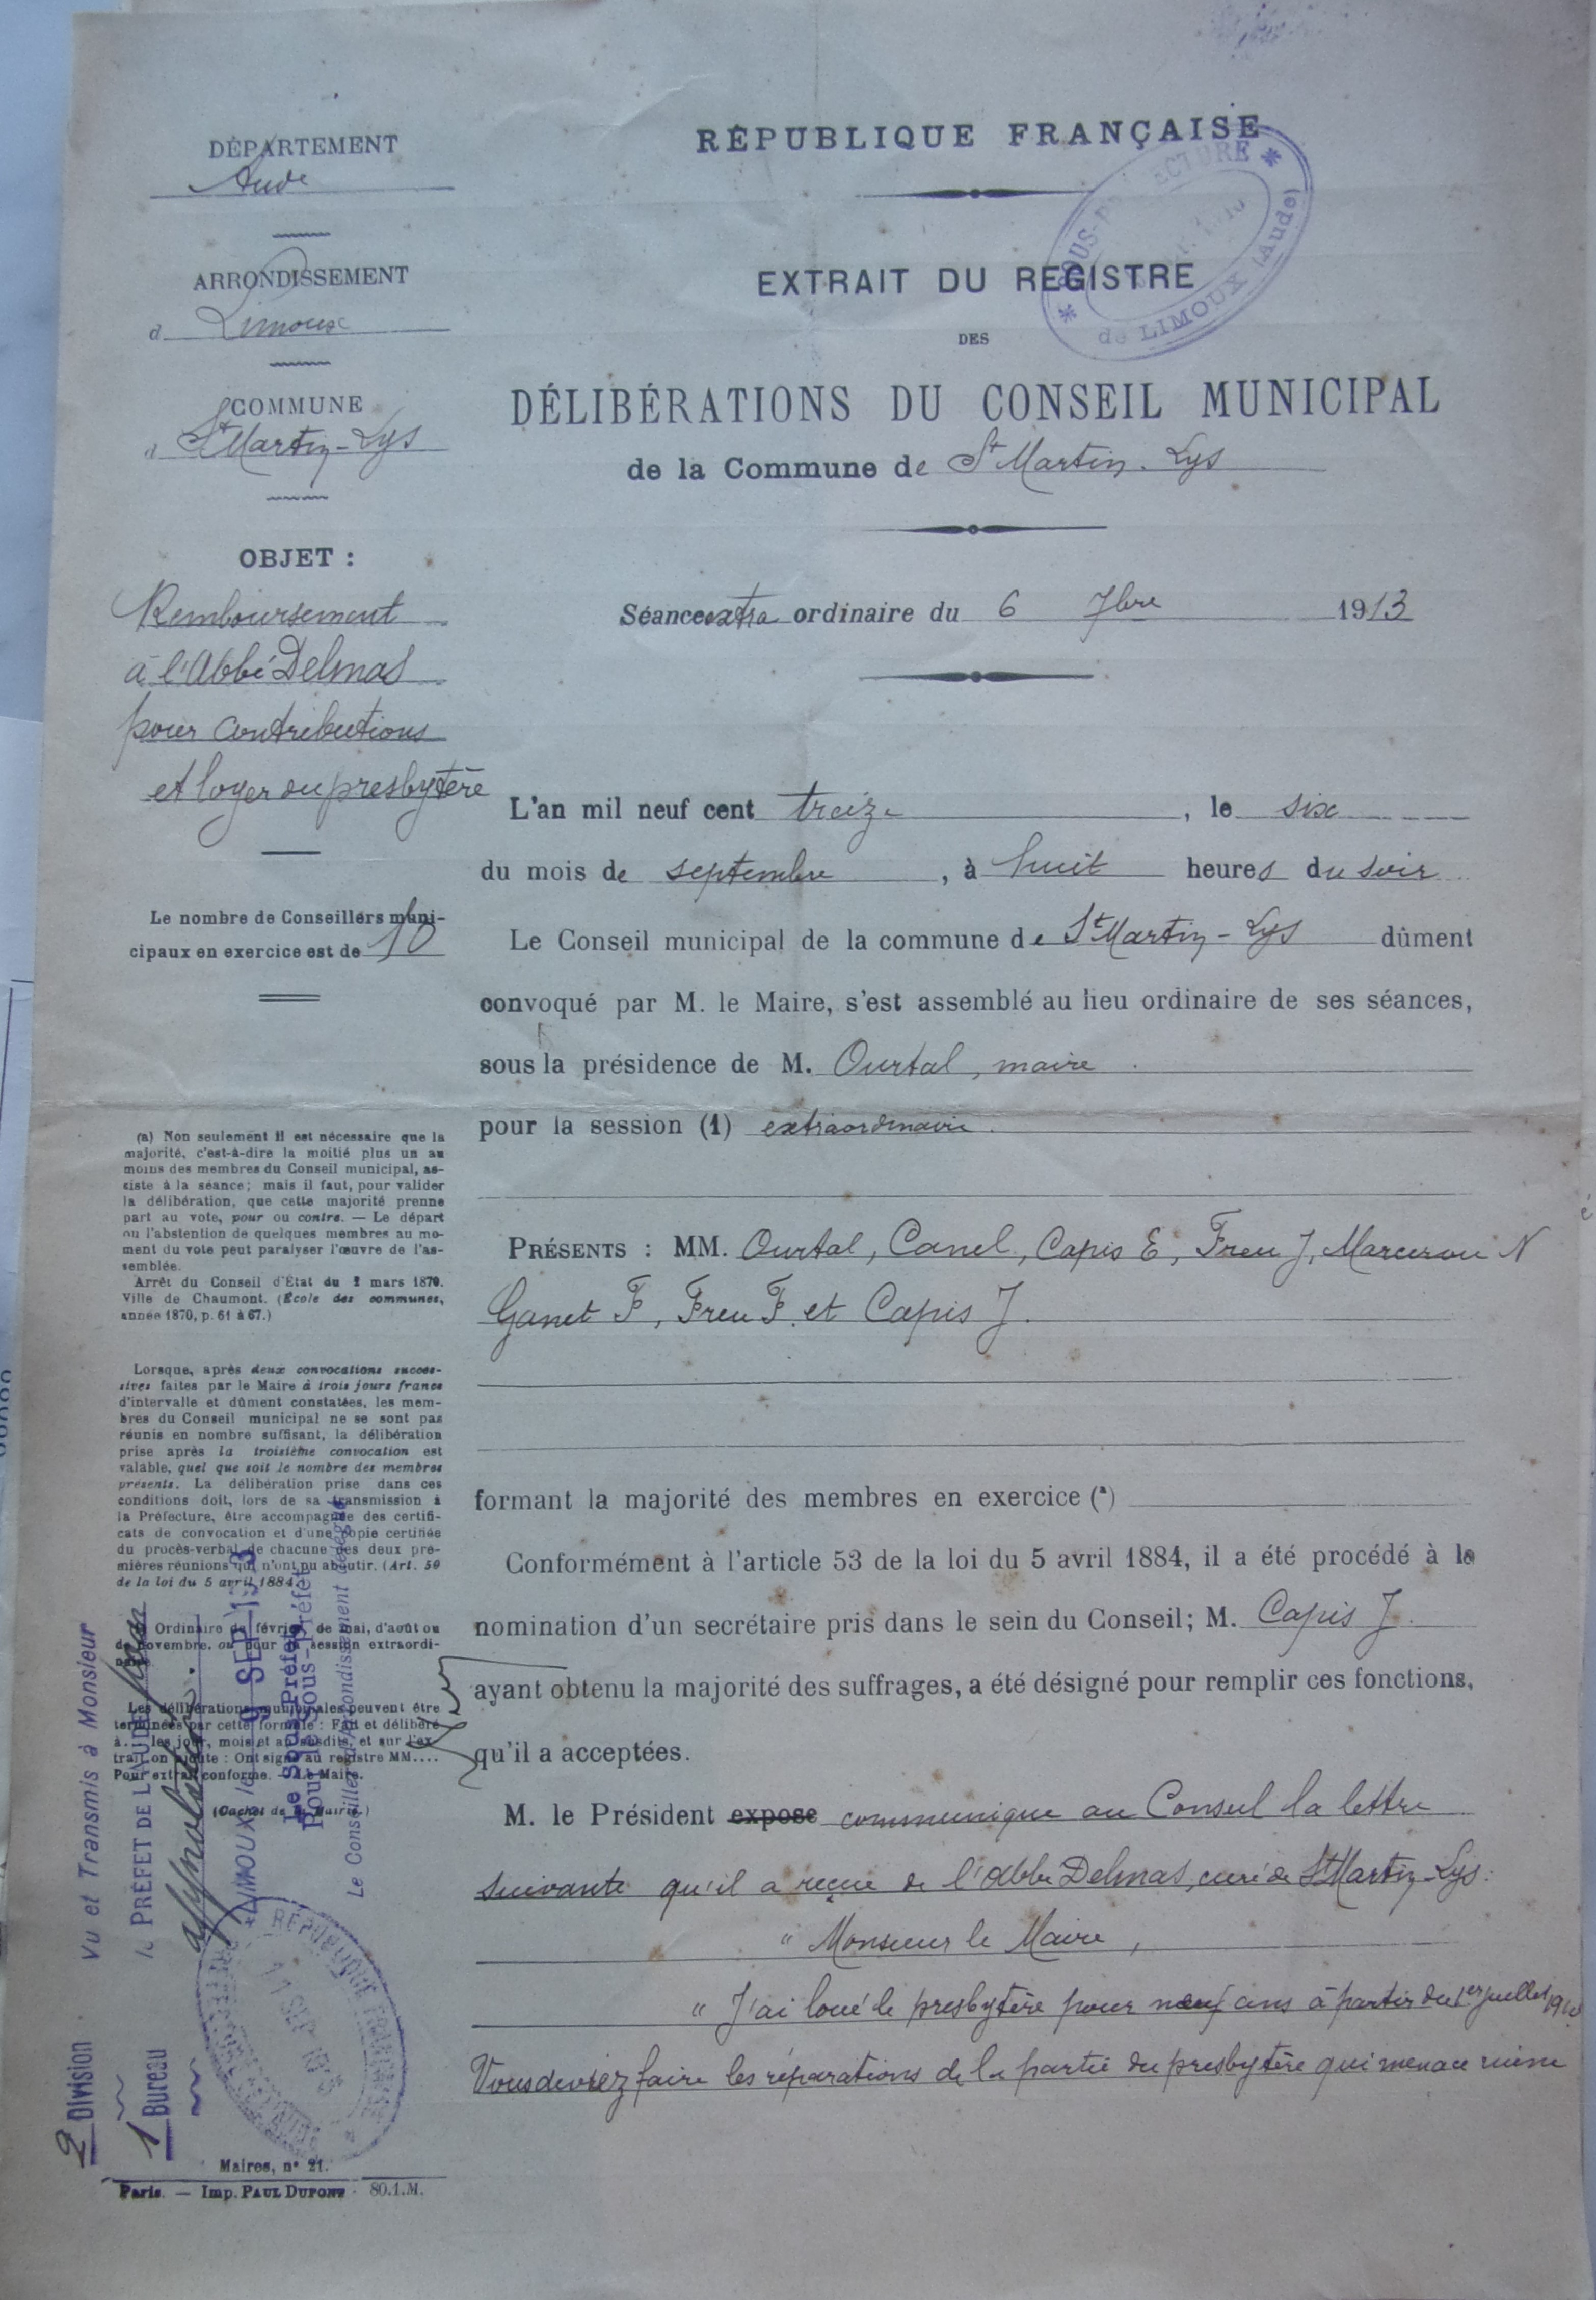 DÉPARTEMENT
Aude
ARRONDISSEMENT
d Limoux
COMMUNE
d St Martin-Lys
OBJET :
Remboursement
à l'Abbé Delmas
pour contributions
et loyer du presbytère
Le nombre de Conseillers muni-
cipaux en exercice est de 10
(a) Non seulement il est nécessaire que la
majorité, c'est-à-dire la moitié plus un au
moins des membres du Conseil municipal, as-
siste à la séance; mais il faut, pour valider
la délibération, que cette majorité prenne
part au vote, pour ou contre. — Le départ
ou l'abstention de quelques membres au mo-
ment du vote peut paralyser l'œuvre de l'as-
semblée.
Arrêt du Conseil d'État du 2 mars 1870.
Ville de Chaumont. (École des communes,
année 1870, p. 61 à 67.)
Lorsque, après deux convocations succes-
sives faites par le Maire à trois jours francs
d'intervalle et dûment constatées, les mem-
bres du Conseil municipal ne se sont pas
réunis en nombre suffisant, la délibération
prise après la troisième convocation est
valable, quel que soit le nombre des membres
présents. La délibération prise dans ces
conditions doit, lors de sa transmission à
la Préfecture, être accompagnée des certifi-
cats de convocation et d'une copie certifiée
du procès-verbal de chacune des deux pre-
mières réunions qui n'ont pu aboutir. (Art. 50
de la loi du 5 avril 1884.
Ordinaire de février, de mai, d'août ou
de novembre, ou pour la session extraordi-
naire.
Les délibérations municipales peuvent être
terminées par cette formule : Fait et délibéré
à... les jour, mois et an susdits, et sur l'ex-
trait on ajoute : Ont signé au registre MM....
Pour extrait conforme. — Le Maire.
(Cachet de la Mairie.)
Vu et Transmis à Monsieur
le PRÉFET DE L'AUDE pour
approbation.
LIMOUX, le 9 SEP 13
Le Sous-Préfet,
Pour le Sous-Préfet
Le Conseiller d'Arrondissement délégué
2 Division
1 Bureau
RÉPUBLIQUE FRANÇAISE
11 SEP 1913
Maires, n° 21.
Paris. — Imp. PAUL DUPONT 80.1.M.
RÉPUBLIQUE FRANÇAISE
SOUS-PRÉFECTURE
de LIMOUX (Aude)
EXTRAIT DU REGISTRE
DES
DÉLIBÉRATIONS DU CONSEIL MUNICIPAL
de la Commune de St Martin-Lys
Séance extra ordinaire du 6 7bre 1913
L'an mil neuf cent treize, le six
du mois de septembre, à huit heures du soir
Le Conseil municipal de la commune de St Martin-Lys dûment
convoqué par M. le Maire, s'est assemblé au lieu ordinaire de ses séances,
sous la présidence de M. Ourtal, maire
pour la session (1) extraordinaire.
PRÉSENTS : MM. Ourtal, Canel, Capis E, Freu J, Marcerou N
Ganet F, Freu F. et Capis J.
formant la majorité des membres en exercice (a)
Conformément à l'article 53 de la loi du 5 avril 1884, il a été procédé à la
nomination d'un secrétaire pris dans le sein du Conseil; M. Capis J.
ayant obtenu la majorité des suffrages, a été désigné pour remplir ces fonctions,
qu'il a acceptées.
M. le Président expose communique au Conseil la lettre
suivante qu'il a reçue de l'abbé Delmas, curé de St Martin-Lys :
" Monsieur le Maire,
" J'ai loué le presbytère pour neuf ans à partir du 1er juillet 1910
Vous deviez faire les réparations de la partie du presbytère qui menace ruine